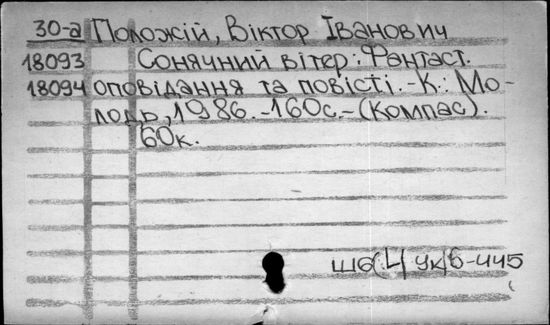 30-а Положій, Віктор Іванович
18093 Сонячний вітер: Фантаст.
18094 оповідання та повісті.-К.: Мо-
лодь, 1986.-160с.-(Компас).
60к.